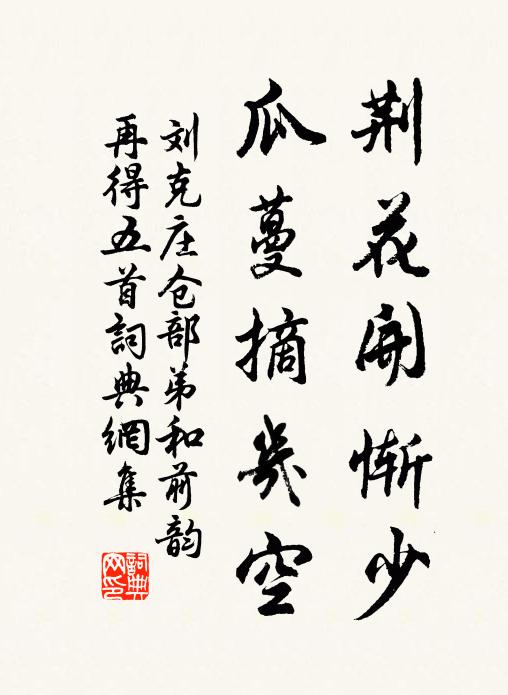 荆花開惭少
瓜蔓摘幾空
刘克庄仓部弟和前韵
再得五首詞典網集
詞典網印